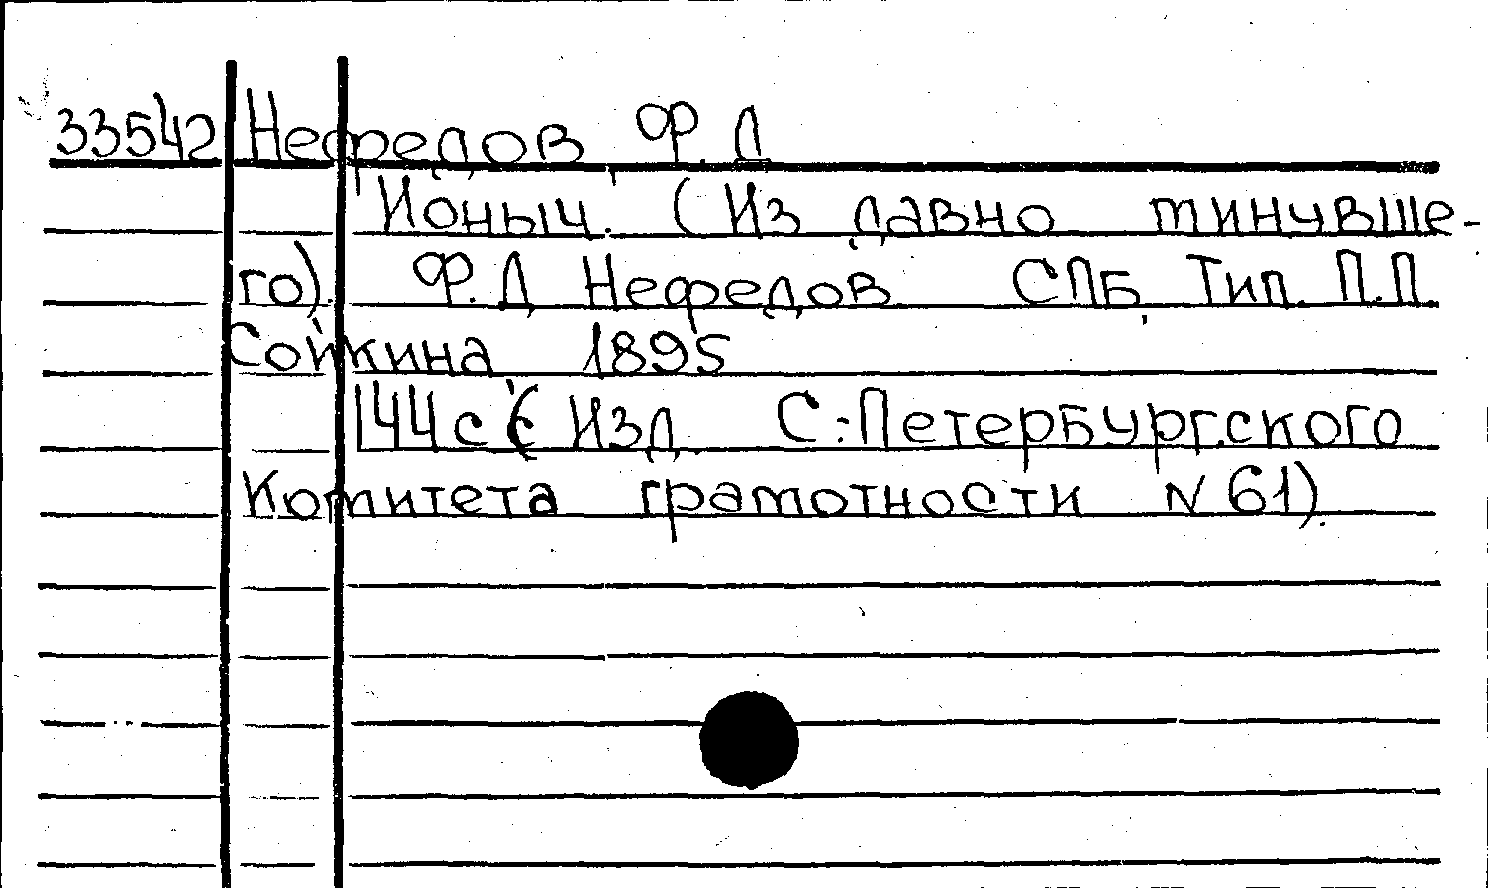 33542 Нефедов Ф. Д
Ионыч. (Из давно минувше-
го). Ф.Д Нефедов. СПБ, Тип. П.П.
Сойкина 1895
144 с (Изд. С.-Петербургского
Комитета грамотности N 61).